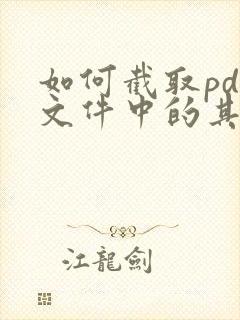 如何截取pd
文件中的其
江龍劍